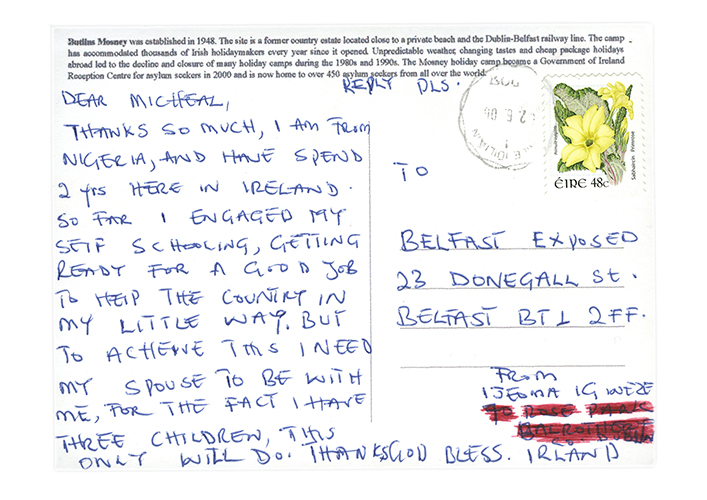 Butlins Mosney was established in 1948. The site is a former country estate located close to a private beach and the Dublin-Belfast railway line. The camp
has accommodated thousands of Irish holidaymakers every year since it opened. Unpredictable weather, changing tastes and cheap package holidays
abroad led to the decline and closure of many holiday camps during the 1980s and 1990s. The Mosney holiday camp became a Government of Ireland
Reception Centre for asylum seekers in 2000 and is now home to over 450 asylum seekers from all over the world.
REPLY PLS.
DEAR MICHEAL,
THANKS SO MUCH, I AM FROM
NIGERIA, AND HAVE SPEND
2 yrs HERE IN IRELAND.
SO FAR I ENGAGED MY
SELF SCHOOLING, GETTING
READY FOR A GOOD JOB
TO HELP THE COUNTRY IN
MY LITTLE WAY. BUT
TO ACHIEVE THIS I NEED
MY SPOUSE TO BE WITH
ME, FOR THE FACT I HAVE
THREE CHILDREN, THIS
ONLY WILL DO. THANKS GOD BLESS. IRLAND
Sabhaircín Primrose
ÉIRE 48c
TO
BELFAST EXPOSED
23 DONEGALL St.
BELFAST BT1 2FF.
FROM
IJEOMA IGWEZE